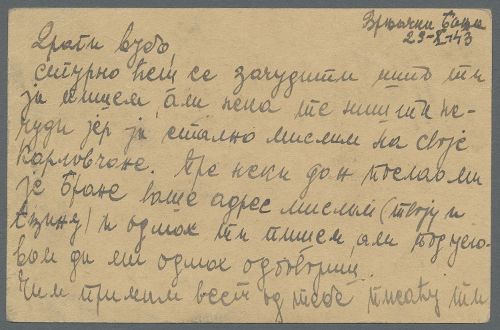 Врњачка Бања
29-X-43
Драги Вубо,
сигурно ћеш се зачудити што ти
ја пишем, али нека те ништа не
чуди јер ја стално мислим на своје
Карловчане. Пре неки дан послао ми
је Бране ваше адрес мислим (твоју и
) и одмах ти пишем, али под усло-
вом да ми одмах одговориш.
Чим примим вест од тебе писаћу ти